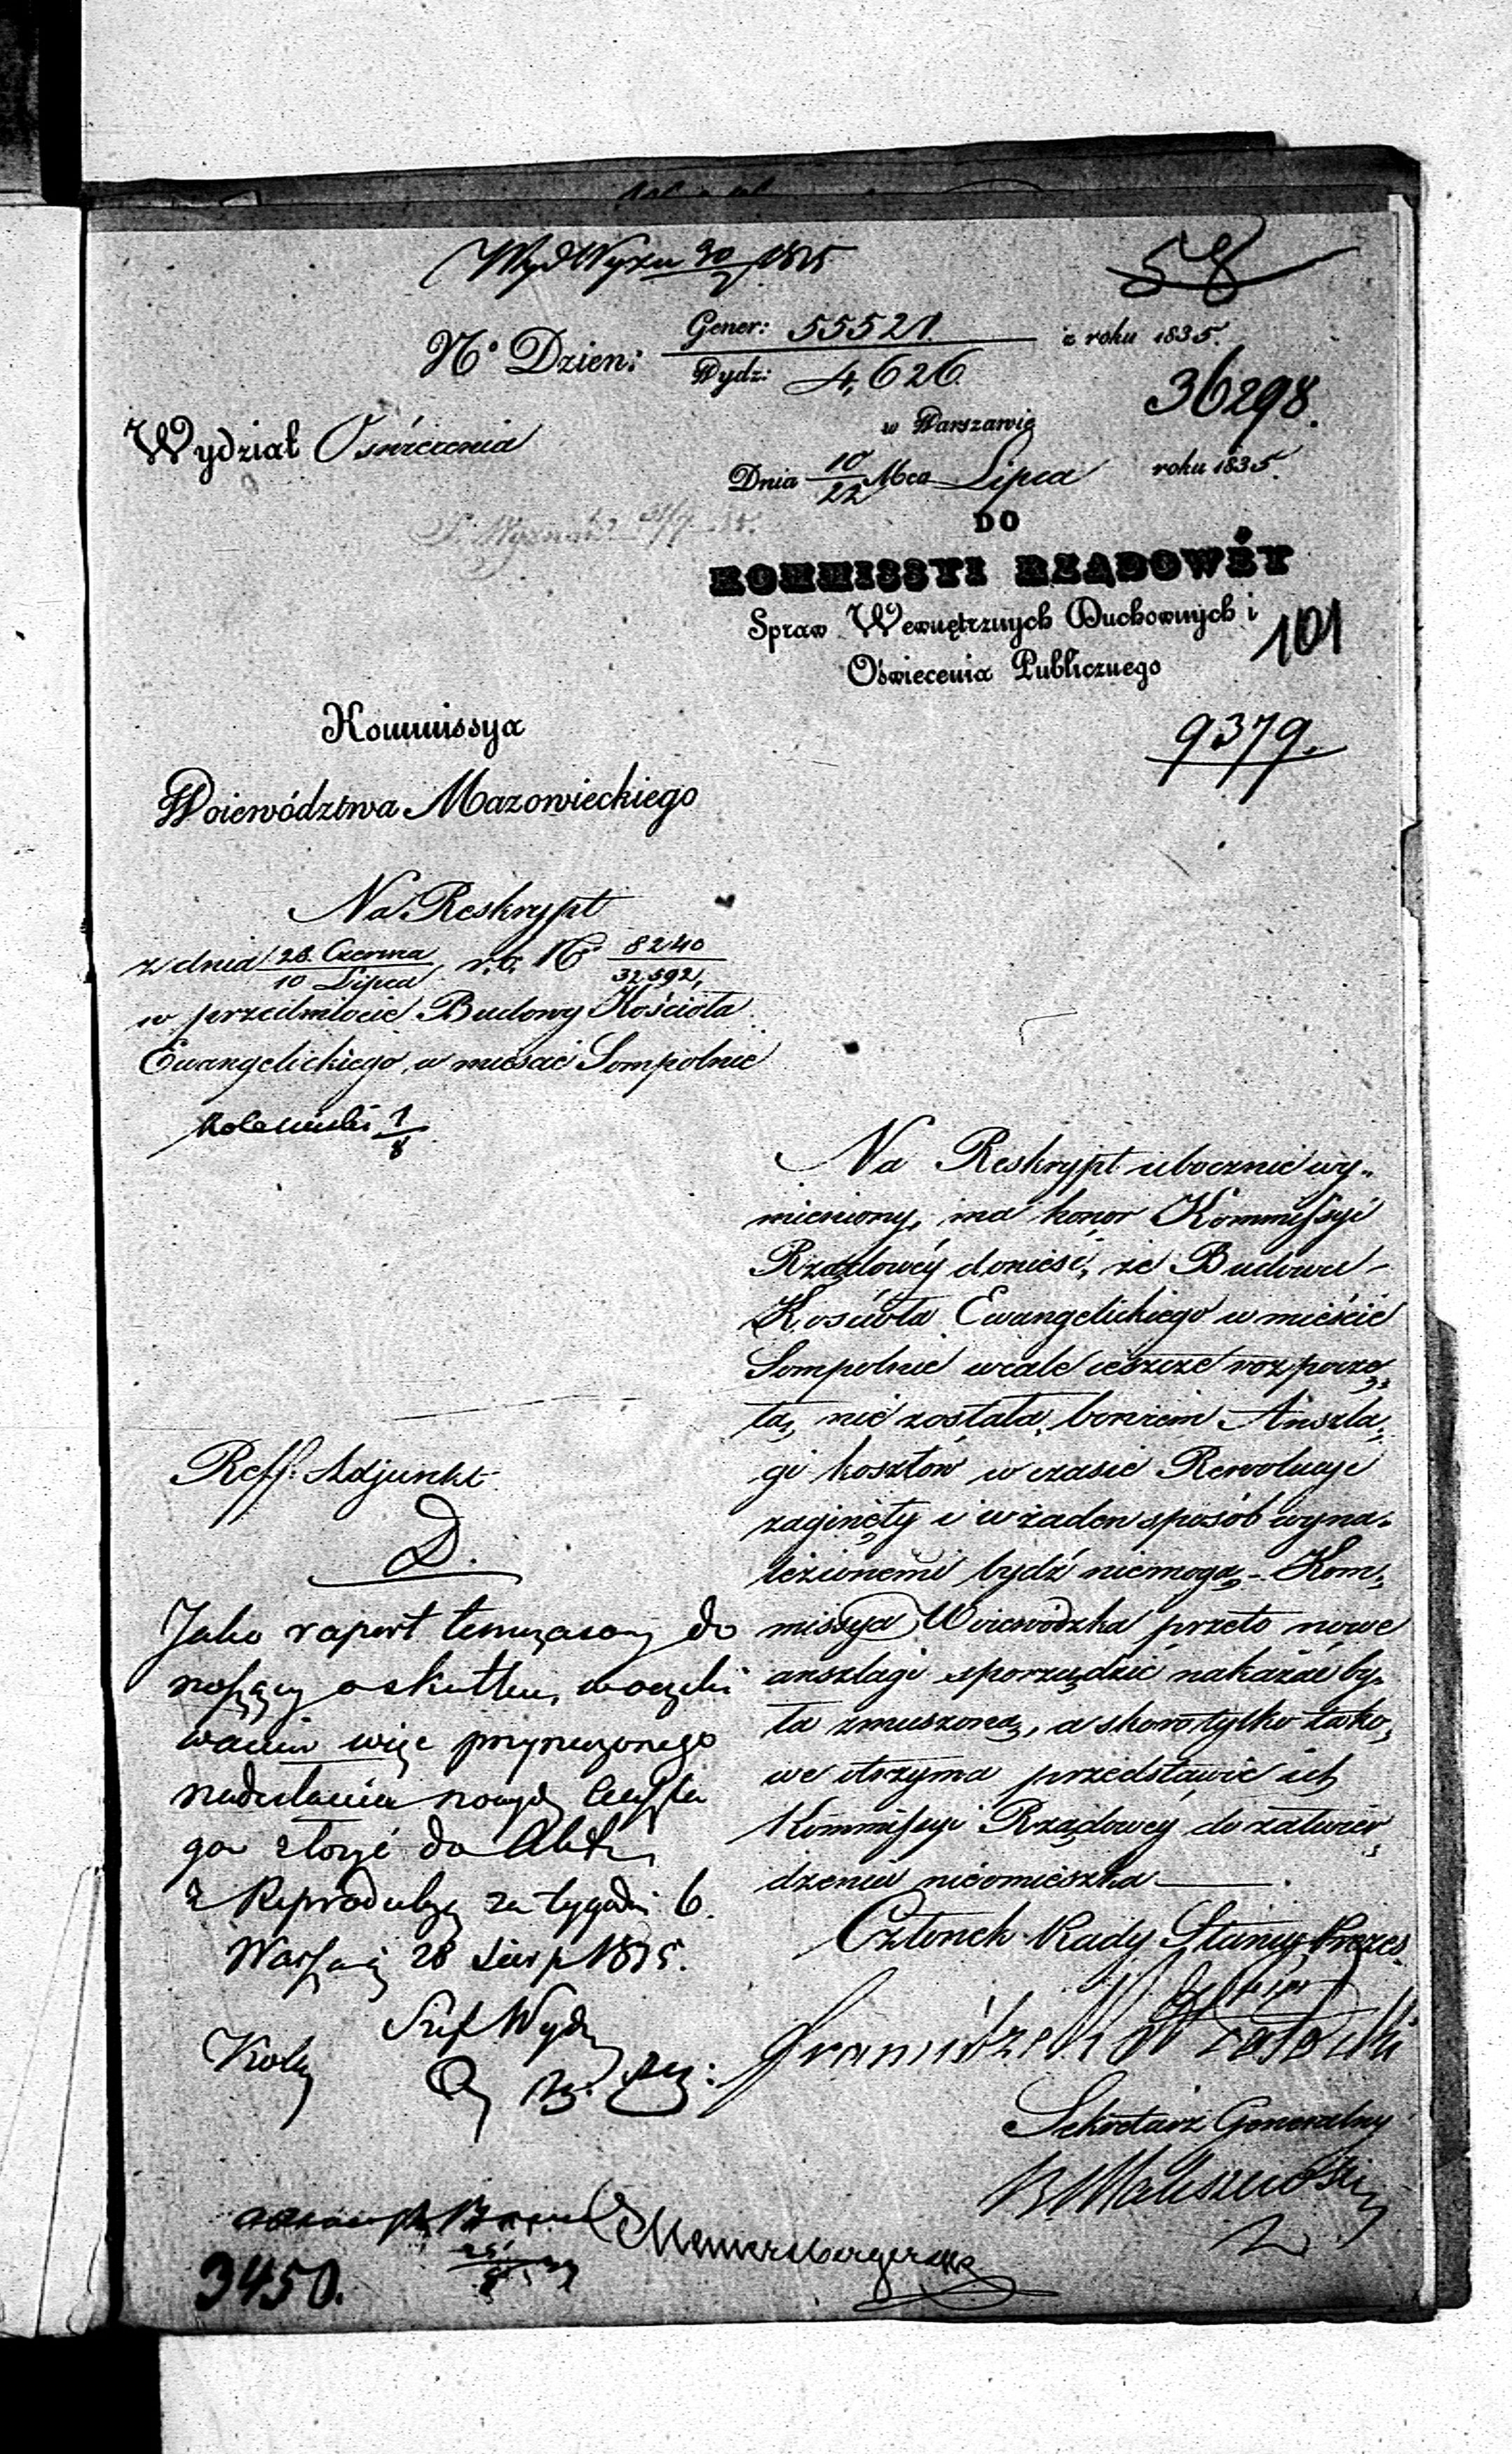 58
Gener: 55521.
Nº Dzien: z roku 1835.
Wydz: 4,626.
36298.
w Warszawie
Wydział Oświecenia
Dnia 10/22 Mca Lipca roku 1835.
DO
KOMMISSYI RZĄDOWÉY
Spraw Wewnętrznych Duchownych i
101
Oświecenia Publicznego
9379.
Kommissya
Woiewództwa Mazowieckiego
Na Reskrypt
z dnia 28. Czerwca / 10 Lipca r. b. Nº 8240 / 32,592,
w przedmiocie Budowy Kościoła
Ewangelickiego w mieście Sompolnie
Na Reskrypt ubocznie wy-
mieniony, ma honor Kommissyi
Rządowéy donieść, że Budowa
Kościoła Ewangelickiego w mieście
Sompolnie wcale ieszcze rozpoczę-
tą nie została, bowiem Anszla-
gi kosztów w czasie Rewolucyi
zaginęły i w żaden sposób wyna-
lezionemi bydź niemogą - Kom-
missya Woiewódzka przeto nowe
anszlagi sporządzić nakazać by-
ła zmuszoną, a skoro tylko tako-
we otrzyma przedstawić ich
Kommissyi Rządowéy do zatwier-
dzenia nieomieszka
Członek Rady Stanu, Prezes
Sekretarz Generalny
Reff. Adjunkt
D.
Jako raport tymczasowy do
noszący o skutku, w oczeki
waniu więc przyrzeczonego
nadesłania nowych Anszla
gów złożyć do Akt,
z Reprodukcyą za tygodni 6.
28 Sierp 1835.
Szef Wydz
3450.